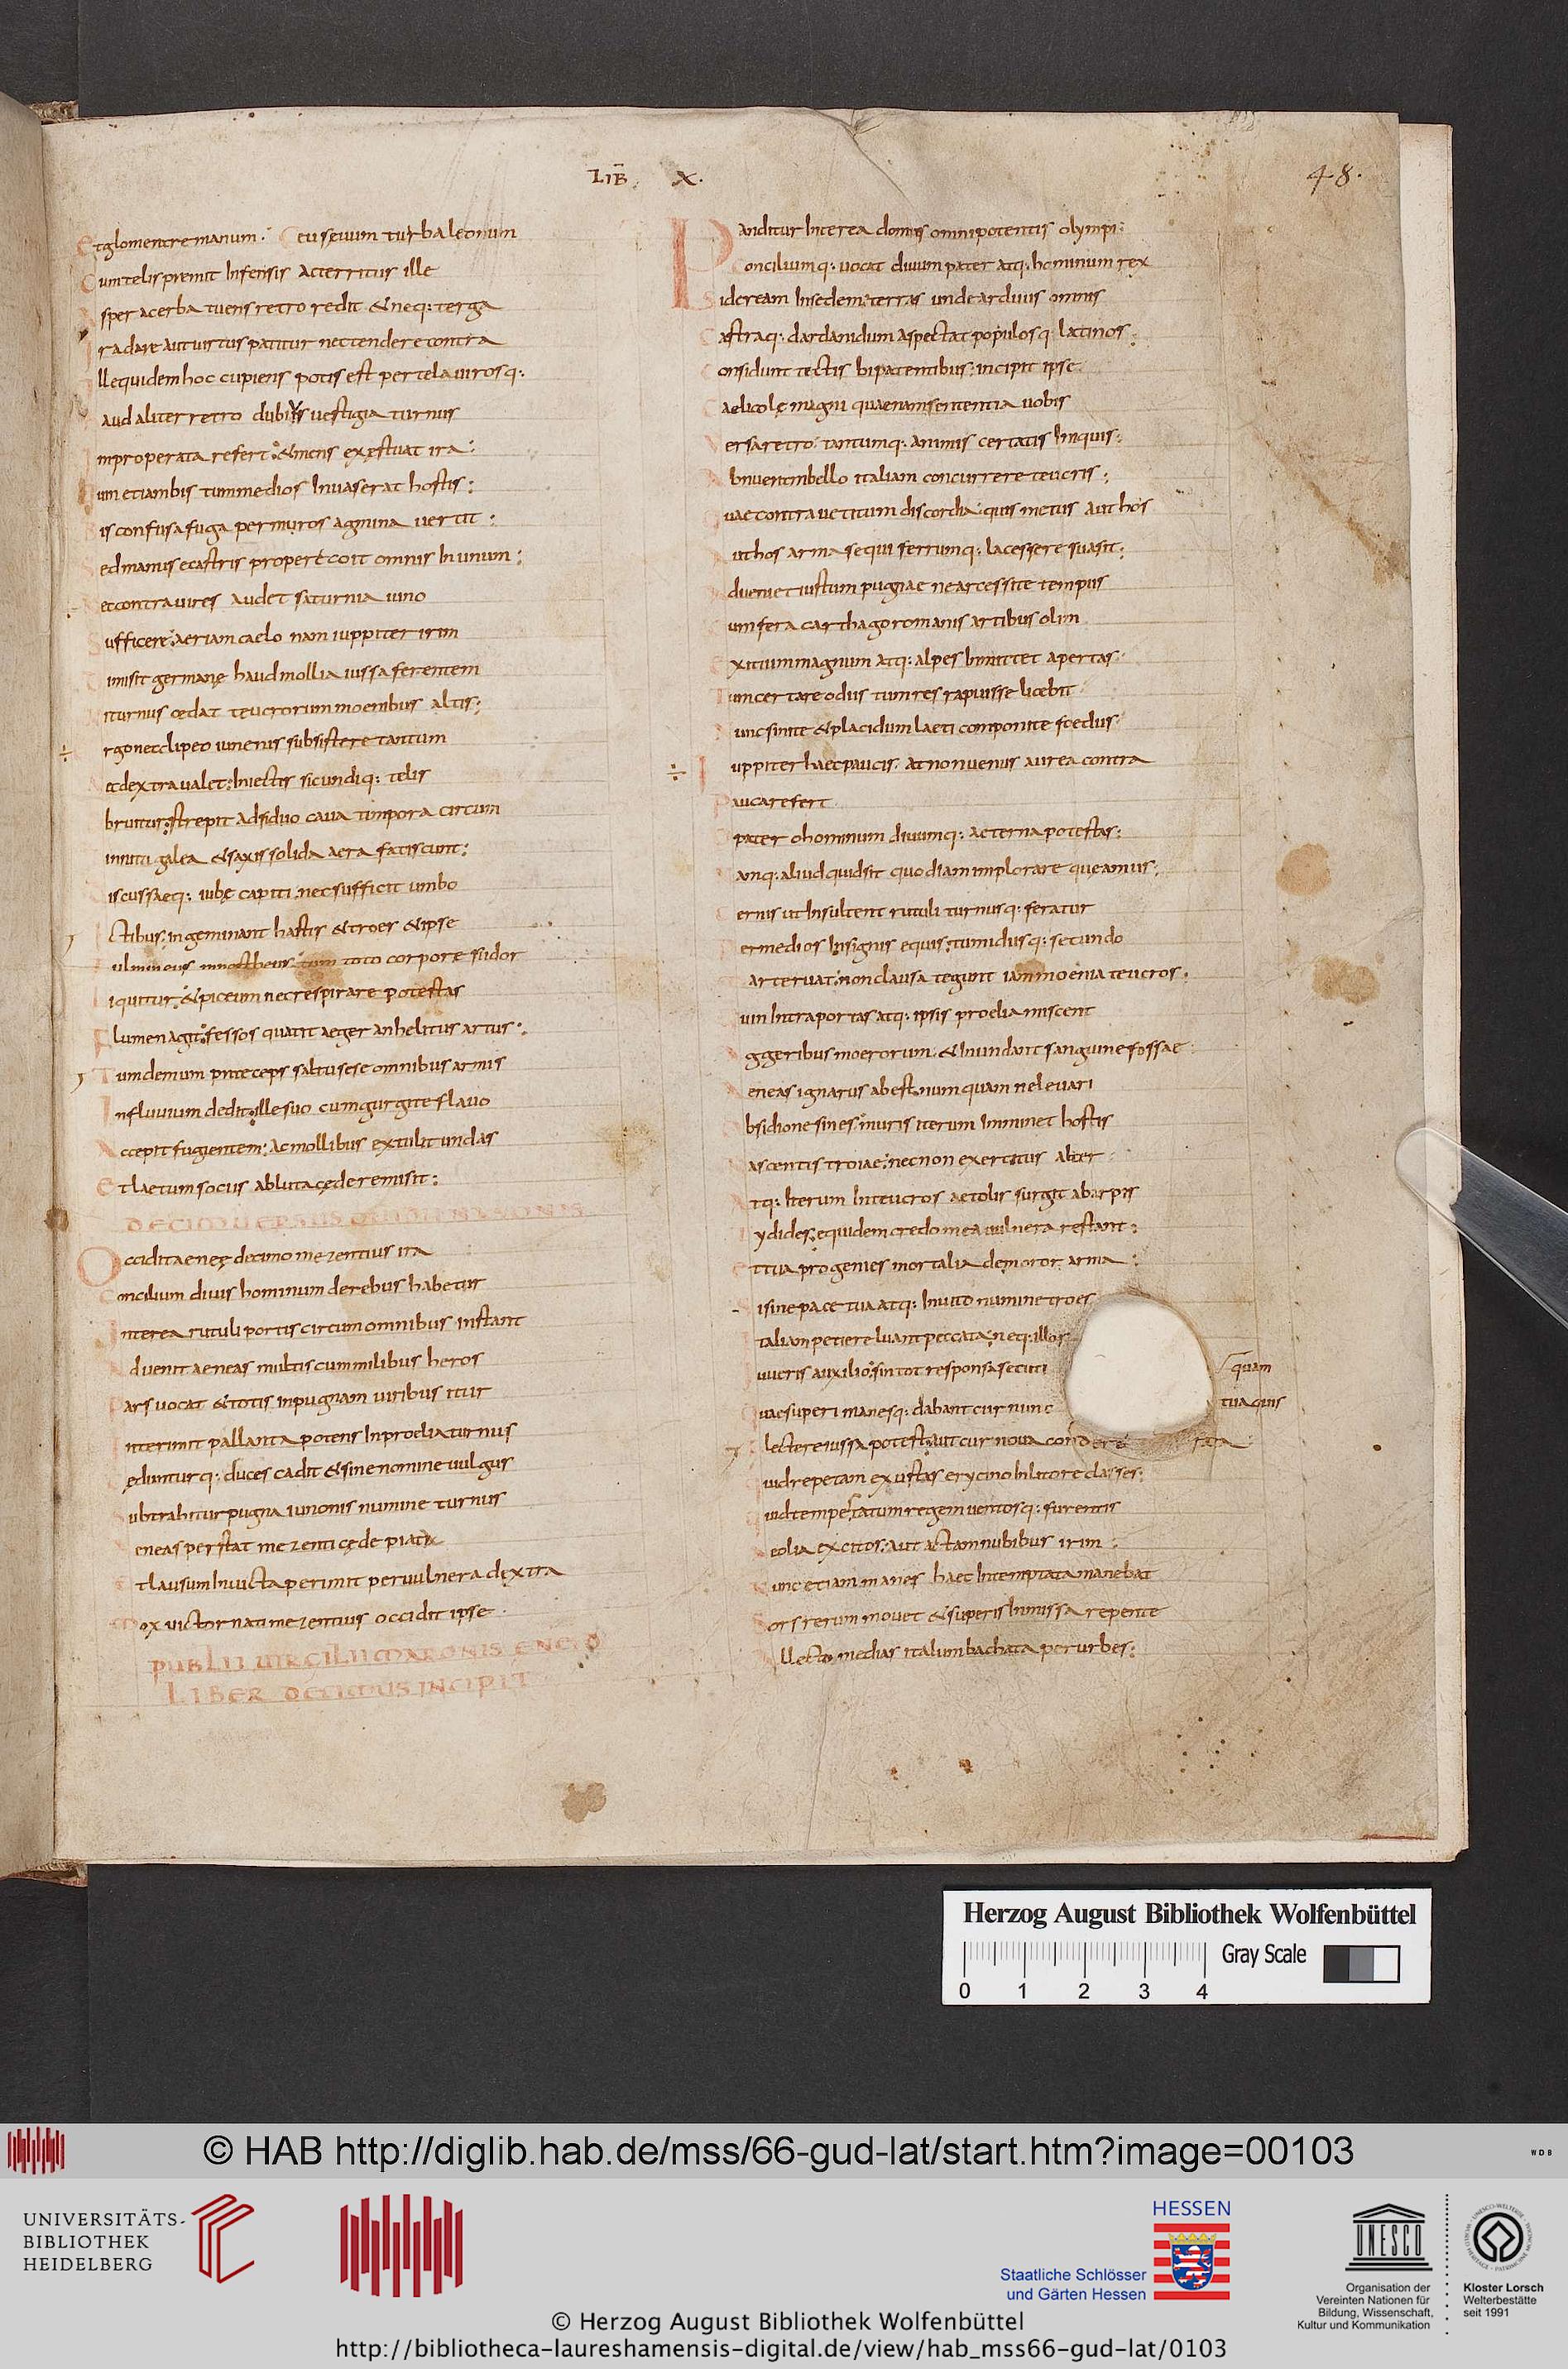 LIB X.
48.
Et glomerare manum: Ceu seuum turba leonum
Cum telis premit Infensis Acterritus ille
Asper acerba tuens retro redit & neq: terga
Ira dare aut uirtus patitur nec tendere contra
Ille quidem hoc cupiens potis est per tela uirosq:
aud aliter retro dubius uestigia turnus
Improperata refert & mens exęstuat ira:
uin etiam bis tum medios Inuaserat hostis:
Bis confusa fuga per muros agmina uertit:
Sed manus ecastris propere coit omnis In unum:
ec contra uires audet saturnia iuno
Sufficere aeriam caelo nam iuppiter irim
Dimisit germanę haud mollia iussa ferentem
Niturnus cedat teucrorum moenibus altis:
rgo nec clipeo iuuenis subsistere tantum
ec dextra ualet: Iniectis sic undiq: telis
bruitur strepit adsiduo caua timpora circum
innitu galea & saxis solida aera fatiscunt:
iscussaeq: iubę capiti nec sufficit umbo
Ictibus: ingeminant hastis & troes & ipse
ulmineus mnestheus tum toto corpore sudor
Liquitur & piceum nec respirare potestas
Flumen agit fessos quatit aeger anhelitus artus:
Tum demum preceps saltu sese omnibus armis
In fluuium dedit ille suo cum gurgite flauo
Accepit fugientem: Ac mollibus extulit undas
Et laetum sociis abluta cęde remisit:
DECIM UERSUS OUIDII NASONIS
Occidit aeneę decimo mezentius ira
Concilium diuis hominum de rebus habetur
Interea rutuli portis circum omnibus instant
Aduenit aeneas multis cum milibus heros
Pars uocat & totis inpugnam uiribus itur
Interimit pallanta potens In proelia turnus
Cęduntur q: duces cadit & sine nomine uulgus
Subtrahitur pugna iunonis numine turnus
Aeneas perstat mezenti cęde piata
Et lausum Inuicta perimit per uulnera dextra
Mox uictor nati mezentius occidit ipse
PUBLII UIRGILII MARONIS ENEID
LIBER DECIMUS INCIPIT
Panditur Interea domus omnipotentis olympi:
Conciliumq: uocat diuum pater atq: hominum rex
Sideream In sedem terras unde arduus omnis
Castraq: dardanidum aspectat populosq: latinos
Considunt tectis bipatentibus: incipit ipse
Caelicolę magni quaenam sententia uobis
Versa retro: tantumq: animis certatis Iniquis:
Abnueram bello italiam concurrere teucris:
Quae contra uetitum discordia: quis metus aut hos
Aut hos arma sequi ferrumq: lacessere suasit:
Adueniet iustum pugnae ne arcessite tempus
Cum fera carthago romanis artibus olim
Exitium magnum atq: alpes Inmittet apertas
Tum certare odiis tum res rapuisse licebit
Nunc sinite & placidum laeti componite foedus
Iuppiter haec paucis. at non uenus aurea contra
Pauca refert
pater o hominum diuumq: aeterna potestas:
amq: aliud quid sit quod iam implorare queamus:
Cernis ut Insultent rutuli turnusq: feratur
Per medios Insignis equis tumidusq: secundo
arte ruat: non clausa tegunt iam moenia teucros:
uin Intra portas atq: ipsis proelia miscent
Aggeribus moerorum & Inundant sanguine fossae
Aeneas ignarus abest numquam ne leuari
Obsidione sines muris iterum Imminet hostis
Nascentis troiae: nec non exercitus alter
Atq: Iterum In teucros aetolis surgit ab arpis
Tydides: equidem credo mea uulnera restant:
Et tua progenies mortalia demoror arma:
Si sine pace tua atq: Inuito numine troes
Italiam petiere luant peccata neq: illos
Iuueris auxilio: sin tot responsa secuti
quam
Quae superi manesq: dabant cur nunc
tua quis
Flectere iussa potest aut cur noua condere fata
Quid repetam exustas erycino In litore classes:
Quid tempestatum regem uentosq: furentis
Aeolia excitos: aut actam nubibus irim:
Nunc etiam manes haec Intemptata manebat
Sors rerum mouet & superis Inmissa repente
Allecto medias italum bachata per urbes:
Herzog August Bibliothek Wolfenbüttel
Gray Scale
0 1 2 3 4
© HAB http://diglib.hab.de/mss/66-gud-lat/start.htm?image=00103
WDB
UNIVERSITÄTS-
BIBLIOTHEK
HEIDELBERG
HESSEN
Staatliche Schlösser
und Gärten Hessen
UNESCO
Organisation der
Vereinten Nationen für
Bildung, Wissenschaft,
Kultur und Kommunikation
Kloster Lorsch
Welterbestätte
seit 1991
© Herzog August Bibliothek Wolfenbüttel
http://bibliotheca-laureshamensis-digital.de/view/hab_mss66-gud-lat/0103